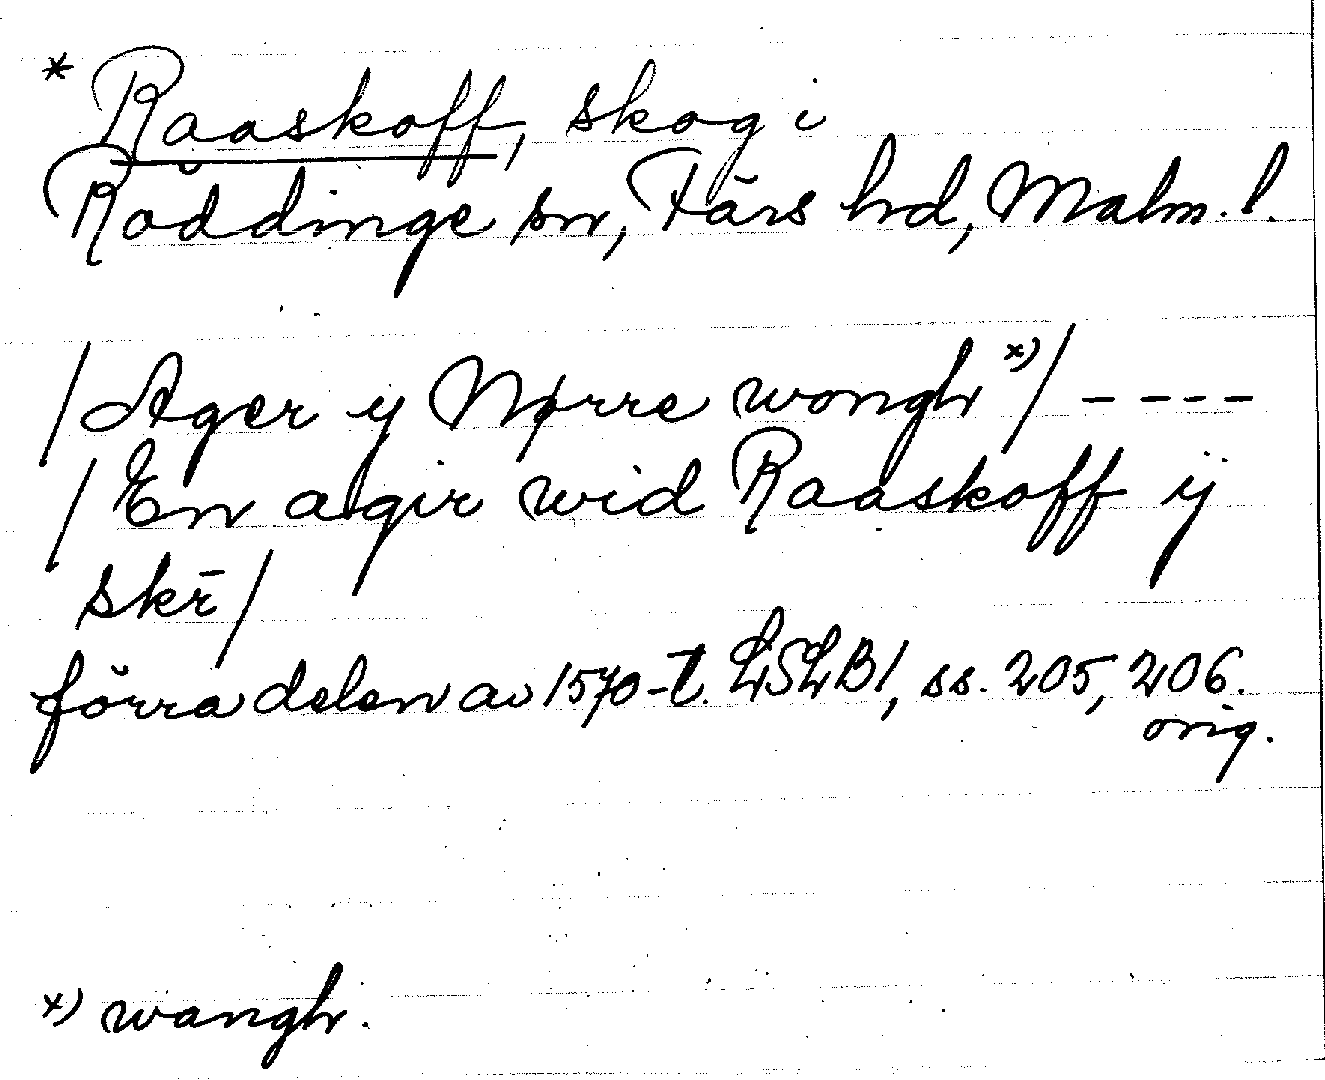 * Raaskoff, skog i
Röddinge sn, Färs hd, Malm. l.
/Ager y Nørre wongh *)/ - - - -
/En agir wid Raaskoff ÿ
skr̄/
förra delen av 1570-t. LSLB1, ss. 205, 206.
orig.
*) wangh.